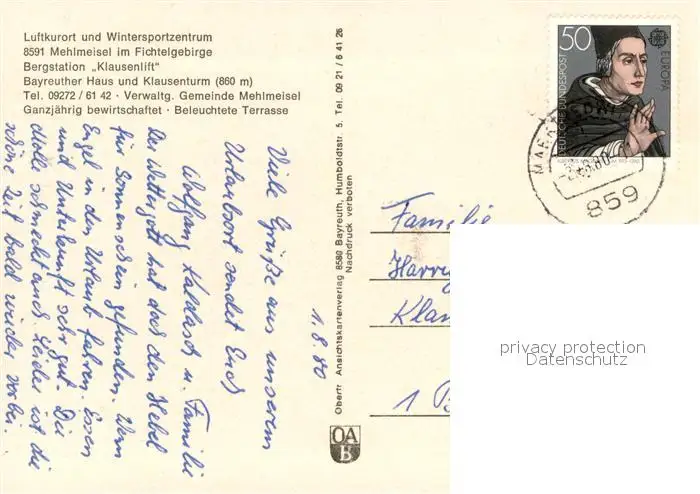 Luftkurort und Wintersportzentrum
8591 Mehlmeisel im Fichtelgebirge
Bergstation „Klausenlift"
Bayreuther Haus und Klausenturm (860 m)
Tel. 09272 / 61 42 · Verwaltg. Gemeinde Mehlmeisel
Ganzjährig bewirtschaftet · Beleuchtete Terrasse
1.8.80
Viele Grüße aus unserem
Urlaubsort sendet Euch
Wolfgang u. Familie
Der Wettergott hat doch den Hebel
für Sonnenschein gefunden. Wenn
Engel in den Urlaub fahren. Essen
und Unterkunft sehr gut. Die
schmeckt auch. Leider ist die
schöne Zeit bald wieder vorbei.
Obertr. Ansichtskartenverlag 8580 Bayreuth, Humboldtstr. 5, Tel. 09 21 / 6 41 26
Nachdruck verboten
OA
B
50
EUROPA
DEUTSCHE BUNDESPOST
859
Familie
1 B
privacy protection
Datenschutz